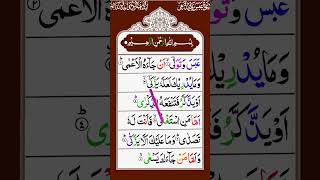 بسم الله الرحمن الرحيم
عَبَسَ وَتَوَلّٰىٓ ۙ اَنْ جَآءَهُ الْاَعْمٰى
وَمَا يُدْرِيْكَ لَعَلَّهٗ يَزَّكّٰىٓ
اَوْ يَذَّكَّرُ فَتَنْفَعَهُ الذِّكْرٰى
اَمَّا مَنِ اسْتَغْنٰى ۙ فَاَنْتَ لَهٗ
تَصَدّٰى ؕ وَمَا عَلَيْكَ اَلَّا يَزَّكّٰى
وَاَمَّا مَنْ جَآءَكَ يَسْعٰى